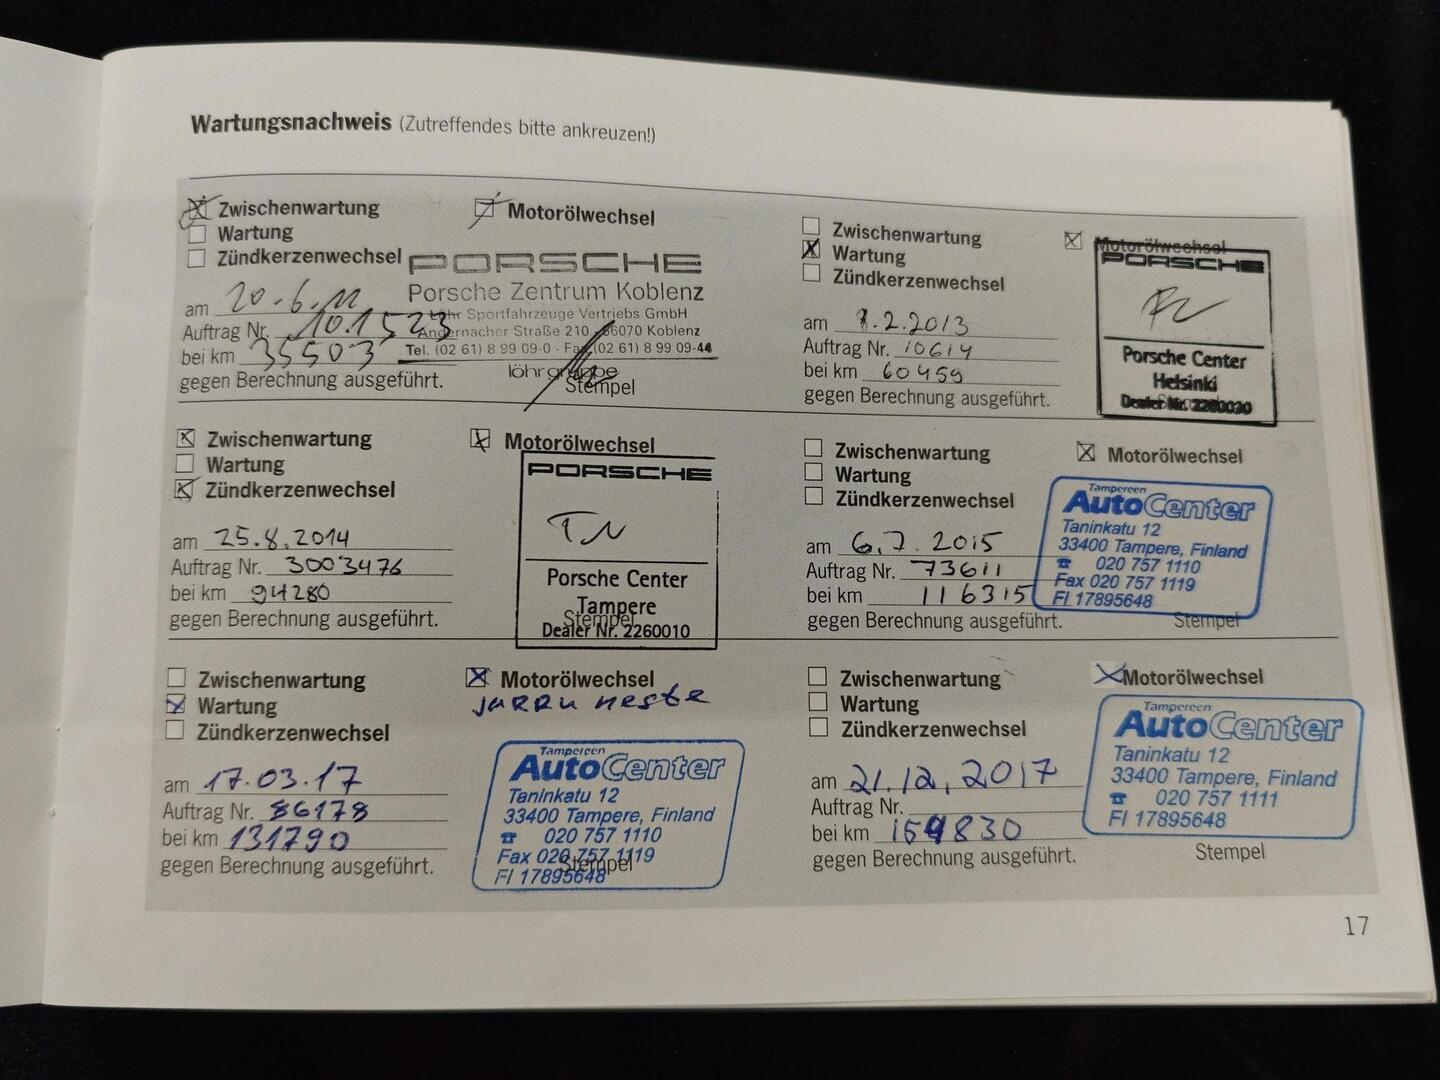 Wartungsnachweis (Zutreffendes bitte ankreuzen!)
Zwischenwartung
Motorölwechsel
Wartung
Zündkerzenwechsel
PORSCHE
Porsche Zentrum Koblenz
Löhr Sportfahrzeuge Vertriebs GmbH
Andernacher Straße 210 · 56070 Koblenz
Tel. (02 61) 8 99 09-0 · Fax (02 61) 8 99 09-44
löhrgruppe
am 20.6.11
Auftrag Nr. 101523
bei km 35503
gegen Berechnung ausgeführt.
Stempel
Zwischenwartung
Motorölwechsel
Wartung
Zündkerzenwechsel
PORSCHE
Porsche Center
Helsinki
Dealer Nr. 2260030
am 1.2.2013
Auftrag Nr. 10614
bei km 60459
gegen Berechnung ausgeführt.
Zwischenwartung
Motorölwechsel
Wartung
Zündkerzenwechsel
PORSCHE
TN
Porsche Center
Tampere
Stempel
Dealer Nr. 2260010
am 25.8.2014
Auftrag Nr. 3003476
bei km 94280
gegen Berechnung ausgeführt.
Zwischenwartung
Motorölwechsel
Wartung
Zündkerzenwechsel
Tampereen
AutoCenter
Taninkatu 12
33400 Tampere, Finland
☎ 020 757 1110
Fax 020 757 1119
FI 17895648
am 6.7.2015
Auftrag Nr. 73611
bei km 116315
gegen Berechnung ausgeführt.
Stempel
Zwischenwartung
Motorölwechsel
Wartung
jarru neste
Zündkerzenwechsel
Tampereen
AutoCenter
Taninkatu 12
33400 Tampere, Finland
☎ 020 757 1110
Fax 020 757 1119
FI 17895648
Stempel
am 17.03.17
Auftrag Nr. 86178
bei km 131790
gegen Berechnung ausgeführt.
Zwischenwartung
Motorölwechsel
Wartung
Zündkerzenwechsel
Tampereen
AutoCenter
Taninkatu 12
33400 Tampere, Finland
☎ 020 757 1111
FI 17895648
am 21.12.2017
Auftrag Nr.
bei km 159830
gegen Berechnung ausgeführt.
Stempel
17